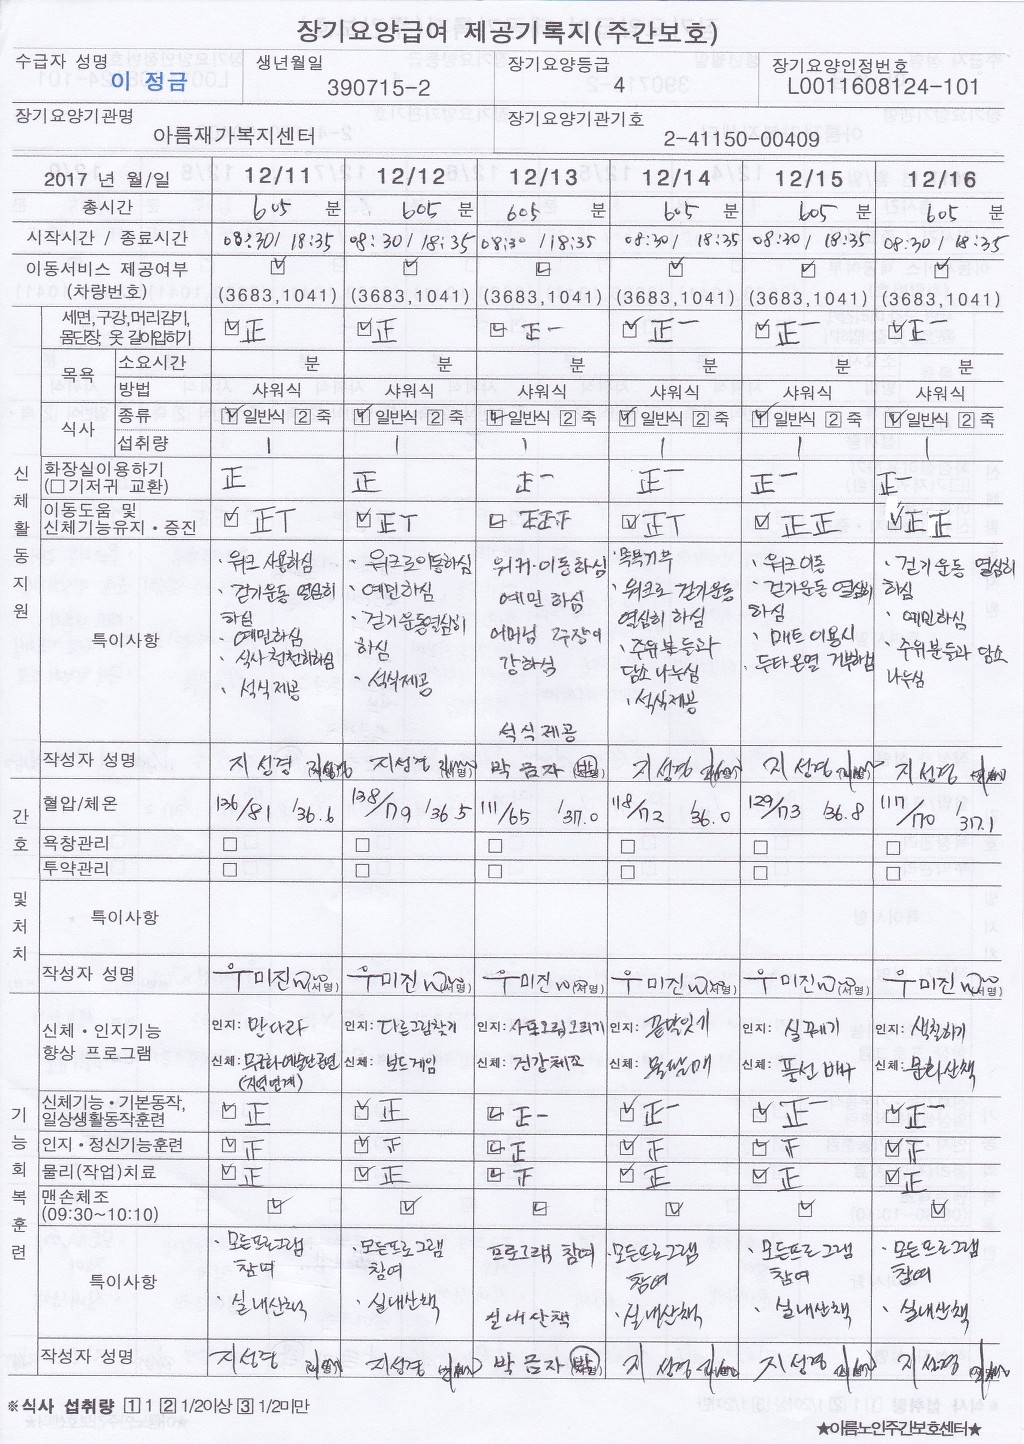 장기요양급여 제공기록지(주간보호)
수급자 성명 이 정금 생년월일 390715-2 장기요양등급 4 장기요양인정번호 L0011608124-101
장기요양기관명 아름재가복지센터 장기요양기관기호 2-41150-00409
2017 년 월/일 12/11 12/12 12/13 12/14 12/15 12/16
총시간 605 분 605 분 605 분 605 분 605 분 605 분
시작시간 / 종료시간 08:30/ 18:35 08:30/ 18:35 08:30 / 18:35 08:30/ 18:35 08:30/ 18:35 08:30/ 18:35
이동서비스 제공여부 ☑ ☑ ☑ ☑ ☑ ☑
(차량번호) (3683,1041) (3683,1041) (3683,1041) (3683,1041) (3683,1041) (3683,1041)
신체활동지원
세면,구강,머리감기, 몸단장, 옷 갈아입히기 ☑正 ☑正 ☑正一 ☑正一 ☑正一 ☑正一
목욕 소요시간 분 분 분 분 분 분
방법 샤워식 샤워식 샤워식 샤워식 샤워식 샤워식
식사 종류 1 일반식 2 죽 1 일반식 2 죽 1 일반식 2 죽 1 일반식 2 죽 1 일반식 2 죽 1 일반식 2 죽
섭취량 1 1 1 1 1 1
화장실이용하기 (□기저귀 교환) 正 正 正一 正一 正一 正一
이동도움 및 신체기능유지・증진 ☑正T ☑正T ☑正正 ☑正T ☑正正 ☑正正
특이사항
·워크 사용하심
·걷기운동 열심히 하심
·예민하심
·식사 천천히하심
·석식제공
·워크로이동하심
·예민하심
·걷기운동열심히 하심
·석식제공
워커·이동하심
예민 하심
어머님 주장이 강하심
석식 제공
·워크로 걷기운동 열심히 하심
·주위분들과 담소 나누심
·석식제공
·워크이동
·걷기운동 열심히 하심
·매트 이용시
·걷기운동 열심히 하심
·예민하심
·주위분들과 담소 나누심
작성자 성명 지성경 지성경 박금자 지성경 지성경 지성경
간호 및 처치
혈압/체온 136/81 /36.6 138/79 /36.5 111/65 /37.0 118/72 /36.0 129/73 /36.8 117/70 /37.1
욕창관리 □ □ □ □ □ □
투약관리 □ □ □ □ □ □
특이사항
작성자 성명 우미진 (서명) 우미진 (서명) 우미진 (서명) 우미진 (서명) 우미진 (서명) 우미진 (서명)
기능회복훈련
신체・인지기능 향상 프로그램
인지: 만다라 인지: 다른그림찾기 인지: 인지: 끝말잇기 인지: 실꿰기 인지: 색칠하기
신체: 무궁화예술단공연 (지역연계) 신체: 보드게임 신체: 건강체조 신체: 신체: 풍선 배구 신체: 문화산책
신체기능・기본동작, 일상생활동작훈련 ☑正 ☑正 ☑正一 ☑正一 ☑正一 ☑正一
인지・정신기능훈련 ☑正 ☑正 ☑正 ☑正 ☑正 ☑正
물리(작업)치료 ☑正 ☑正 ☑正 ☑正 ☑正 ☑正
맨손체조 (09:30~10:10) ☑ ☑ ☑ ☑ ☑ ☑
특이사항
·모든프로그램 참여
·실내산책
·모든프로그램 참여
·실내산책
프로그램 참여
실내산책
·모든프로그램 참여
·실내산책
·모든프로그램 참여
·실내산책
·모든프로그램 참여
·실내산책
작성자 성명 지성경 지성경 박금자 지성경 지성경 지성경
※식사 섭취량 1 1 2 1/2이상 3 1/2미만
★아름노인주간보호센터★